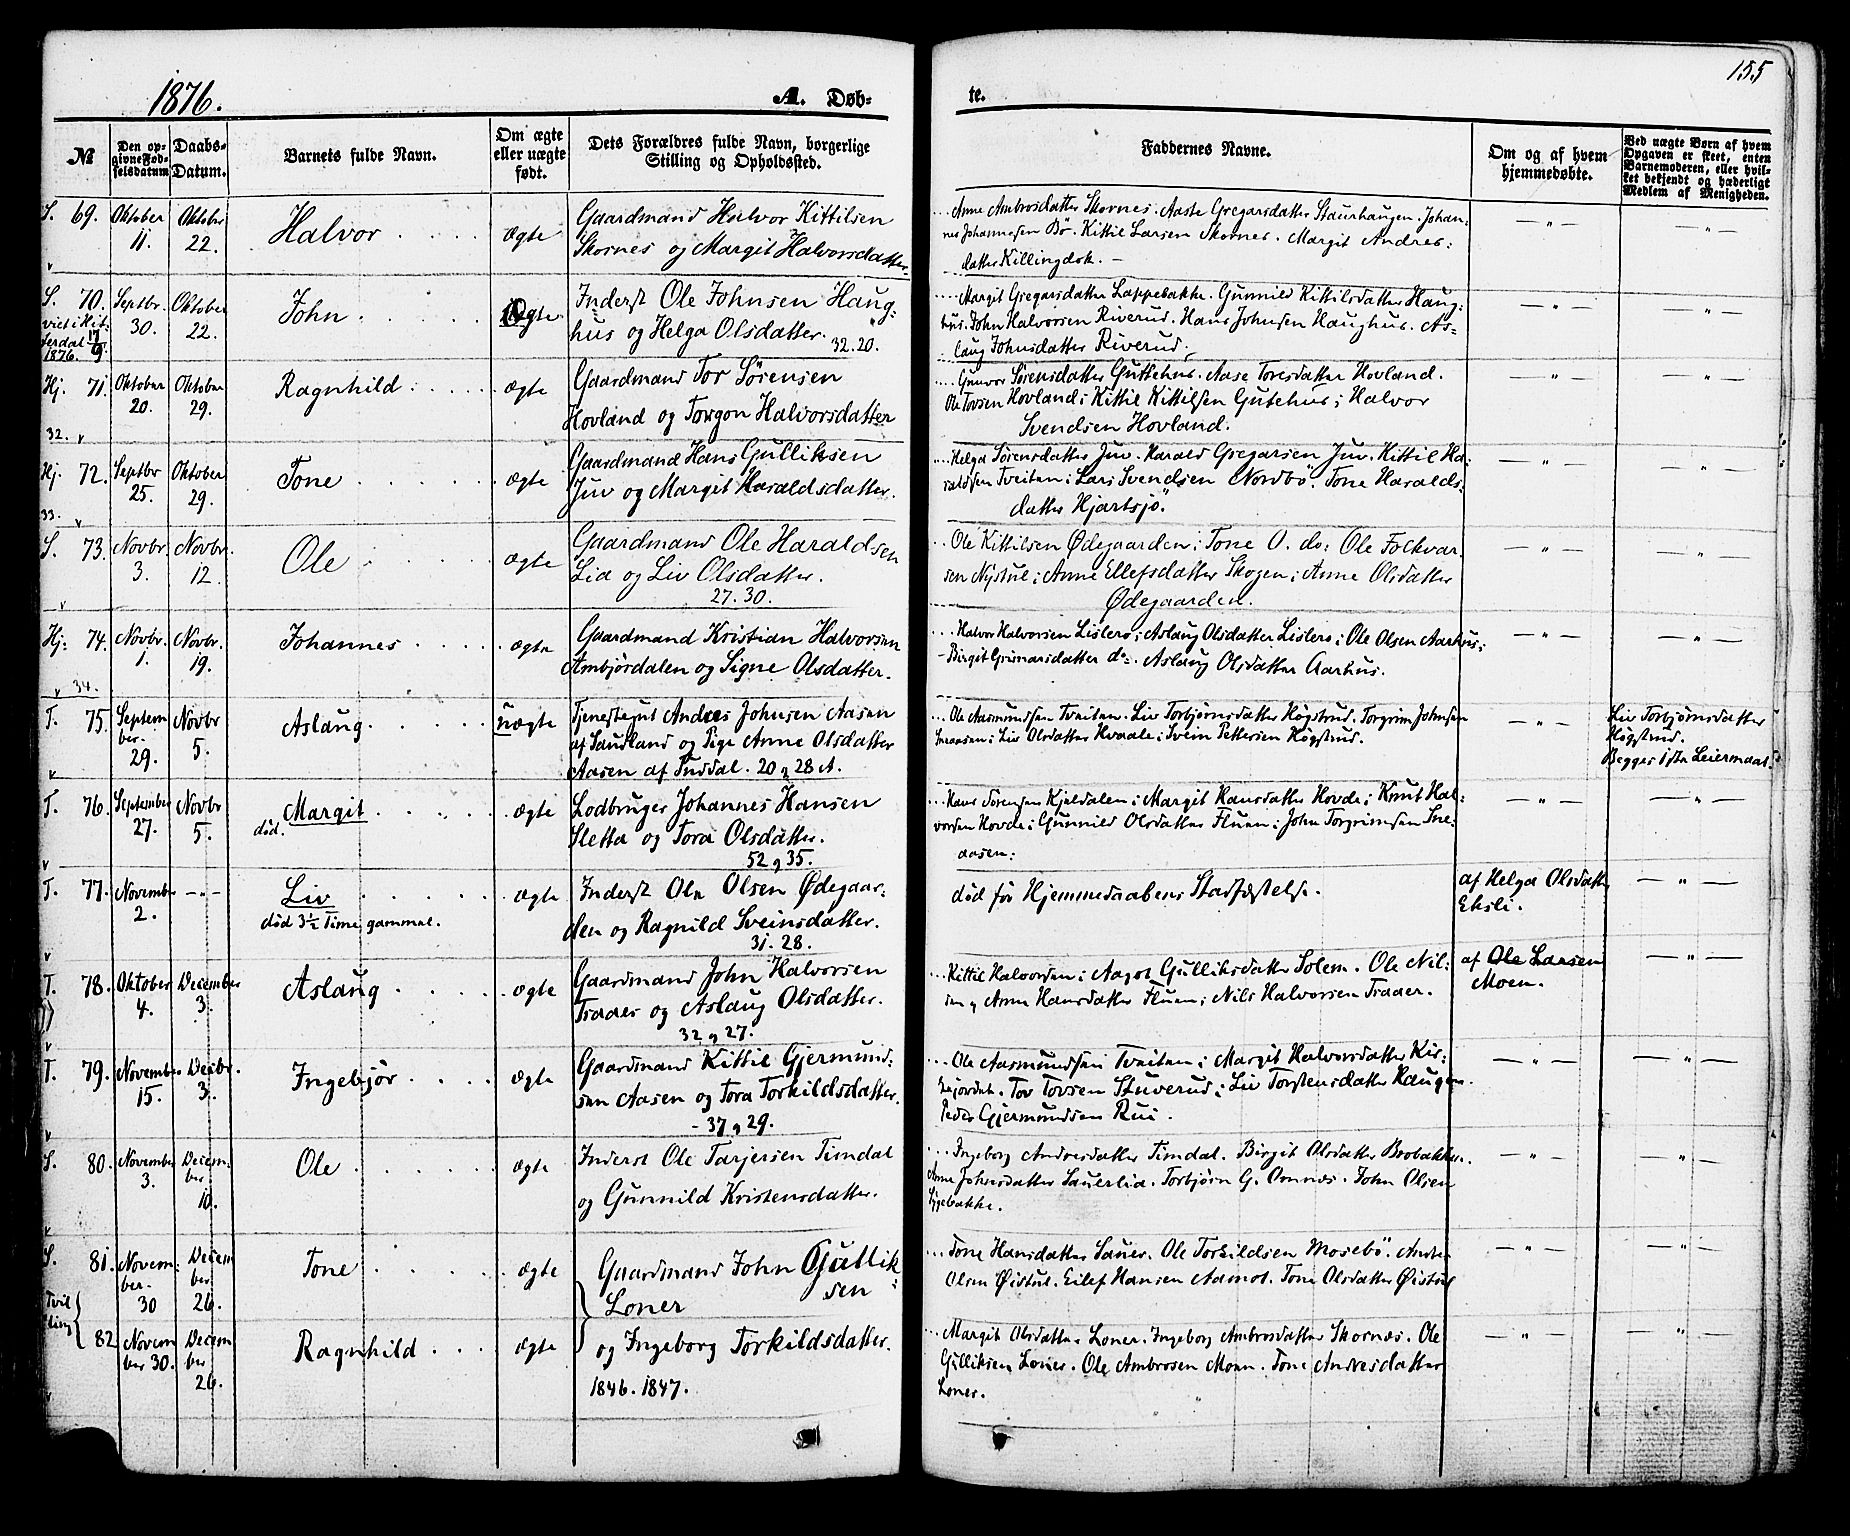 1876.
A. Døb-
te.
155
№
Den op-
givne Fød-
selsdatum
Daabs-
Datum.
Barnets fulde Navn.
Om ægte
eller uægte
født.
Dets Forældres fulde Navn, borgerlige
Stilling og Opholdssted.
Faddernes Navne.
Om og af hvem
hjemmedøbte.
Ved uægte Børn af hvem
Opgaven er skeet, enten
Barnemoderen, eller hvil-
ket bekjendt og hæderligt
Medlem af Menigheden.
S. 69. Oktober
11.
Oktobr
22.
Halvor
ægte
Gaardmand Halvor Kittilsen
Skornes og Margit Halvorsdatter.
Anne Ambrosdatter Skornes. Aaste Gregarsdatter Staurhaugen. Johan-
nes Johannesen Bø. Kittil Larsen Skornes. Margit Andres-
datter Killingdok. —
— " —
— " —
S. 70.
viet i Hit-
terdal 17/9
1876.
Septbr.
30.
Oktober
22.
John
ægte
Inderst Ole Johnsen Haug-
hus og Helga Olsdatter.
32. 20.
Margit Gregarsdatter Lappebakke. Gunnild Kittilsdatter Haug-
hus. John Halvorsen Riverud. Hans Johnsen Haughus. As-
laug Johnsdatter Riverud.
— " —
— " —
Hj. 71.
32.
Oktober
20.
Oktober
29.
Ragnhild
ægte
Gaardmand Tor Sørensen
Hovland og Torgon Halvorsdatter
Gunvor Sørensdatter Guttehus. Aase Toresdatter Hovland.
Ole Tovsen Hovland; Kittil Kittilsen Gutehus; Halvor
Svendsen Hovland.
— " —
— " —
Hj. 72.
33.
Septbr
25.
Oktober
29.
Tone
ægte
Gaardmand Hans Gulliksen
Juv og Margit Haraldsdatter.
Helga Sørensdatter Juv. Harald Gregarsen Juv. Kittil Ha-
raldsen Tveiten; Lars Svendsen Nordbø. Tone Haralds-
datter Hjartsjø.
— " —
— " —
S. 73.
Novbr.
3.
Novbr.
12.
Ole
ægte
Gaardmand Ole Haraldsen
Lia og Liv Olsdatter.
27. 30.
Ole Kittilsen Ødegaarden; Tone O. do: Ole Folkvar-
sen Nystul; Anne Ellefsdatter Skogen; Anne Olsdatter
Ødegaarden.
— " —
— " —
Hj: 74.
34.
Novbr.
1.
Novbr.
19.
Johannes
ægte
Gaardmand Kristian Halvorsen
Ambjördalen og Signe Olsdatter.
Halvor Halvorsen Lislero; Aslaug Olsdatter Lislero; Ole Olsen Aarhus;
Birgit Grimarsdatter do. Aslaug Olsdatter Aarhus.
— " —
— " —
T. 75.
Septem
ber.
29.
Novbr
5.
Aslaug
uægte
Tjenestegut Andres Johnsen Aasen
af Saudland og Pige Anne Olsdatter
Aasen af Tuddal. 20 og 28 A.
Ole Aasmundsen Tveiten. Liv Torbjørnsdatter Høgstrud. Torgrim Johnsen
Sneaasen; Liv Olsdatter Hvaale; Svein Pettersen Høgstrud.
— " —
Liv Torbjørnsdatter
Høgstrud.
Begges 1ste Leiermaal.
T. 76.
September
27.
Novbr
5.
Margit
død.
ægte
Lodbruger Johannes Hansen
Sletta og Tora Olsdatter.
52 og 35.
Hans Sørensen Kjeldalen; Margit Hansdatter Hovde; Knut Hal-
vorsen Hovde; Gunnild Olsdatter Fluen; John Torgrimsen Sne-
aasen:
— " —
— " —
T. 77.
Novembr
2.
— " —
Liv
død 3½ Time gammel.
ægte
Inderst Ole Olsen Ødegaar-
den og Ragnild Sveinsdatter.
31. 28.
død før Hjemmedaabens Stadfæstelse.
af Helga Olsdatter
Eksli.
— " —
T. 78.
Oktober
4.
December
3.
Aslaug
ægte
Gaardmand John Halvorsen
Traaer og Aslaug Olsdatter.
32 og 27.
Kittil Halvorsen; Aagot Gulliksdatter Solem. Ole Nil-
sen og Anne Hansdatter Fluen; Nils Halvorsen Traaer.
af Ole Larsen
Moen.
— " —
T. 79.
Novembr.
15.
Decbr.
3.
Ingebjør
ægte
Gaardmand Kittil Gjermund-
sen Aasen og Tora Torkildsdatter.
- 37 og 29.
Ole Aasmundsen Tveiten; Margit Halvorsdatter Kir-
kejordet. Tov Tovsen Stuverud; Liv Torstensdatter Haugen.
Peder Gjermundsen Rui.
— " —
— " —
S. 80.
November
3.
Decem-
ber
10.
Ole
ægte
Inderst Ole Tarjersen Timdal
og Gunnild Kristensdatter.
Ingeborg Andresdatter Timdal. Birgit Olsdatter Brobakken.
Anne Johnsdatter Sauerlia. Torbjørn G. Omnæs. John Olsen
— " —
— " —
S. 81.
Novem-
ber.
30
Decem
ber
26.
Tone
ægte
Gaardmand John Gullik-
sen
Loner
Tone Hansdatter Sauer. Ole Torkildsen Mosebø.
Olsen Øistul. Eilef Hansen Aamot. Tone Olsdatter Øistul
— " —
— " —
Tvil
ling
82
Novem
ber 30.
Decem
ber
26.
Ragnhild
ægte
og Ingeborg Torkildsdatter.
1846. 1847.
Margit Olsdatter Loner. Ingeborg Ambrosdatter Skornæs. Ole
Gulliksen Loner. Ole Ambrosen Moen. Tone Andresdatter
Loner.
— " —
— " —